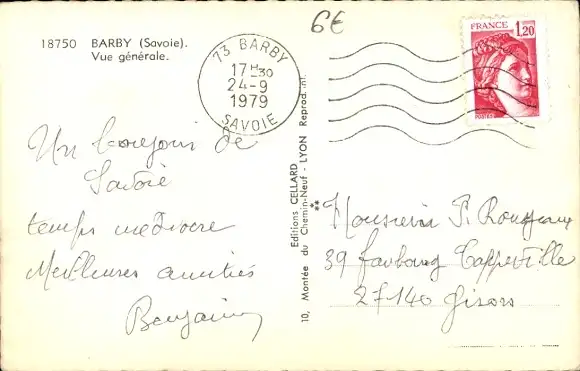 6€
18750 BARBY (Savoie).
Vue générale.
73 BARBY
17 H 30
24-9
1979
SAVOIE
FRANCE
1,20
POSTES
Un bonjour de
Savoie
temps médiocre
Meilleures amitiés
Benjamin
Editions CELLARD
10, Montée du Chemin-Neuf - LYON Reprod. int.
**
Monsieur P. Rousseau
39 faubourg Cappeville
27140 Gisors